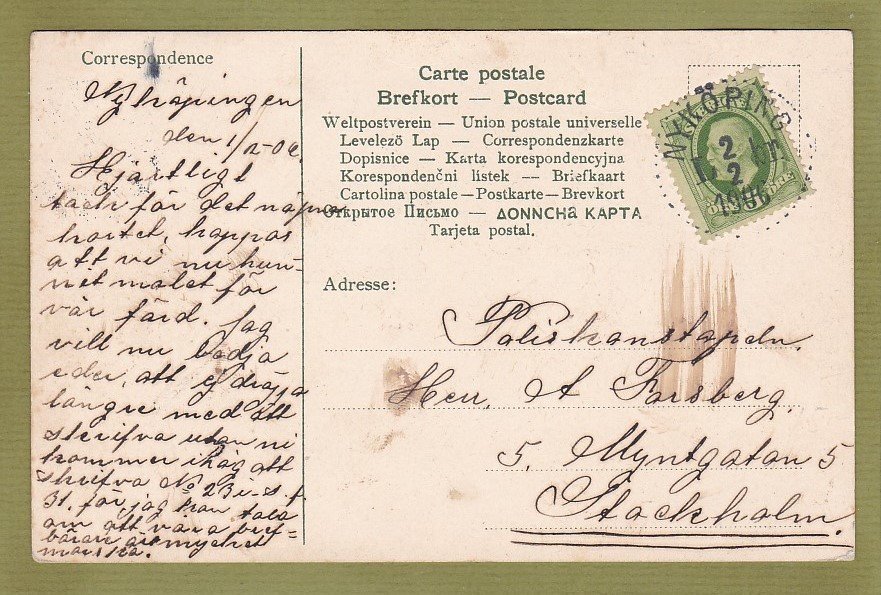 Correspondence
Nyköpingen
den 1/2-06.
Hjärtligt
tack för det näpna
kortet, hoppas
att vi nu hun-
nit målet för
vår färd. Jag
vill nu bedja
eder, att ej dröja
längre med att
skrifva utan ni
kommer ihåg att
skrifva No 23 i-s. f.
31. för, jag kan tala
om att våra bref=
bärare äro mycket
Carte postale
Brefkort — Postcard
Weltpostverein — Union postale universelle
Levelező Lap — Correspondenzkarte
Dopisnice — Karta korespondencyjna
Korespondenční listek — Briefkaart
Cartolina postale — Postkarte — Brevkort
Открытое Письмо — ΔΟΝΝCHa ΚΑΡΤΑ
Tarjeta postal.
NYKÖPING
2
2
1906
Adresse:
Poliskonstapeln.
Herr, A Forsberg.
5. Myntgatan 5
Stockholm.